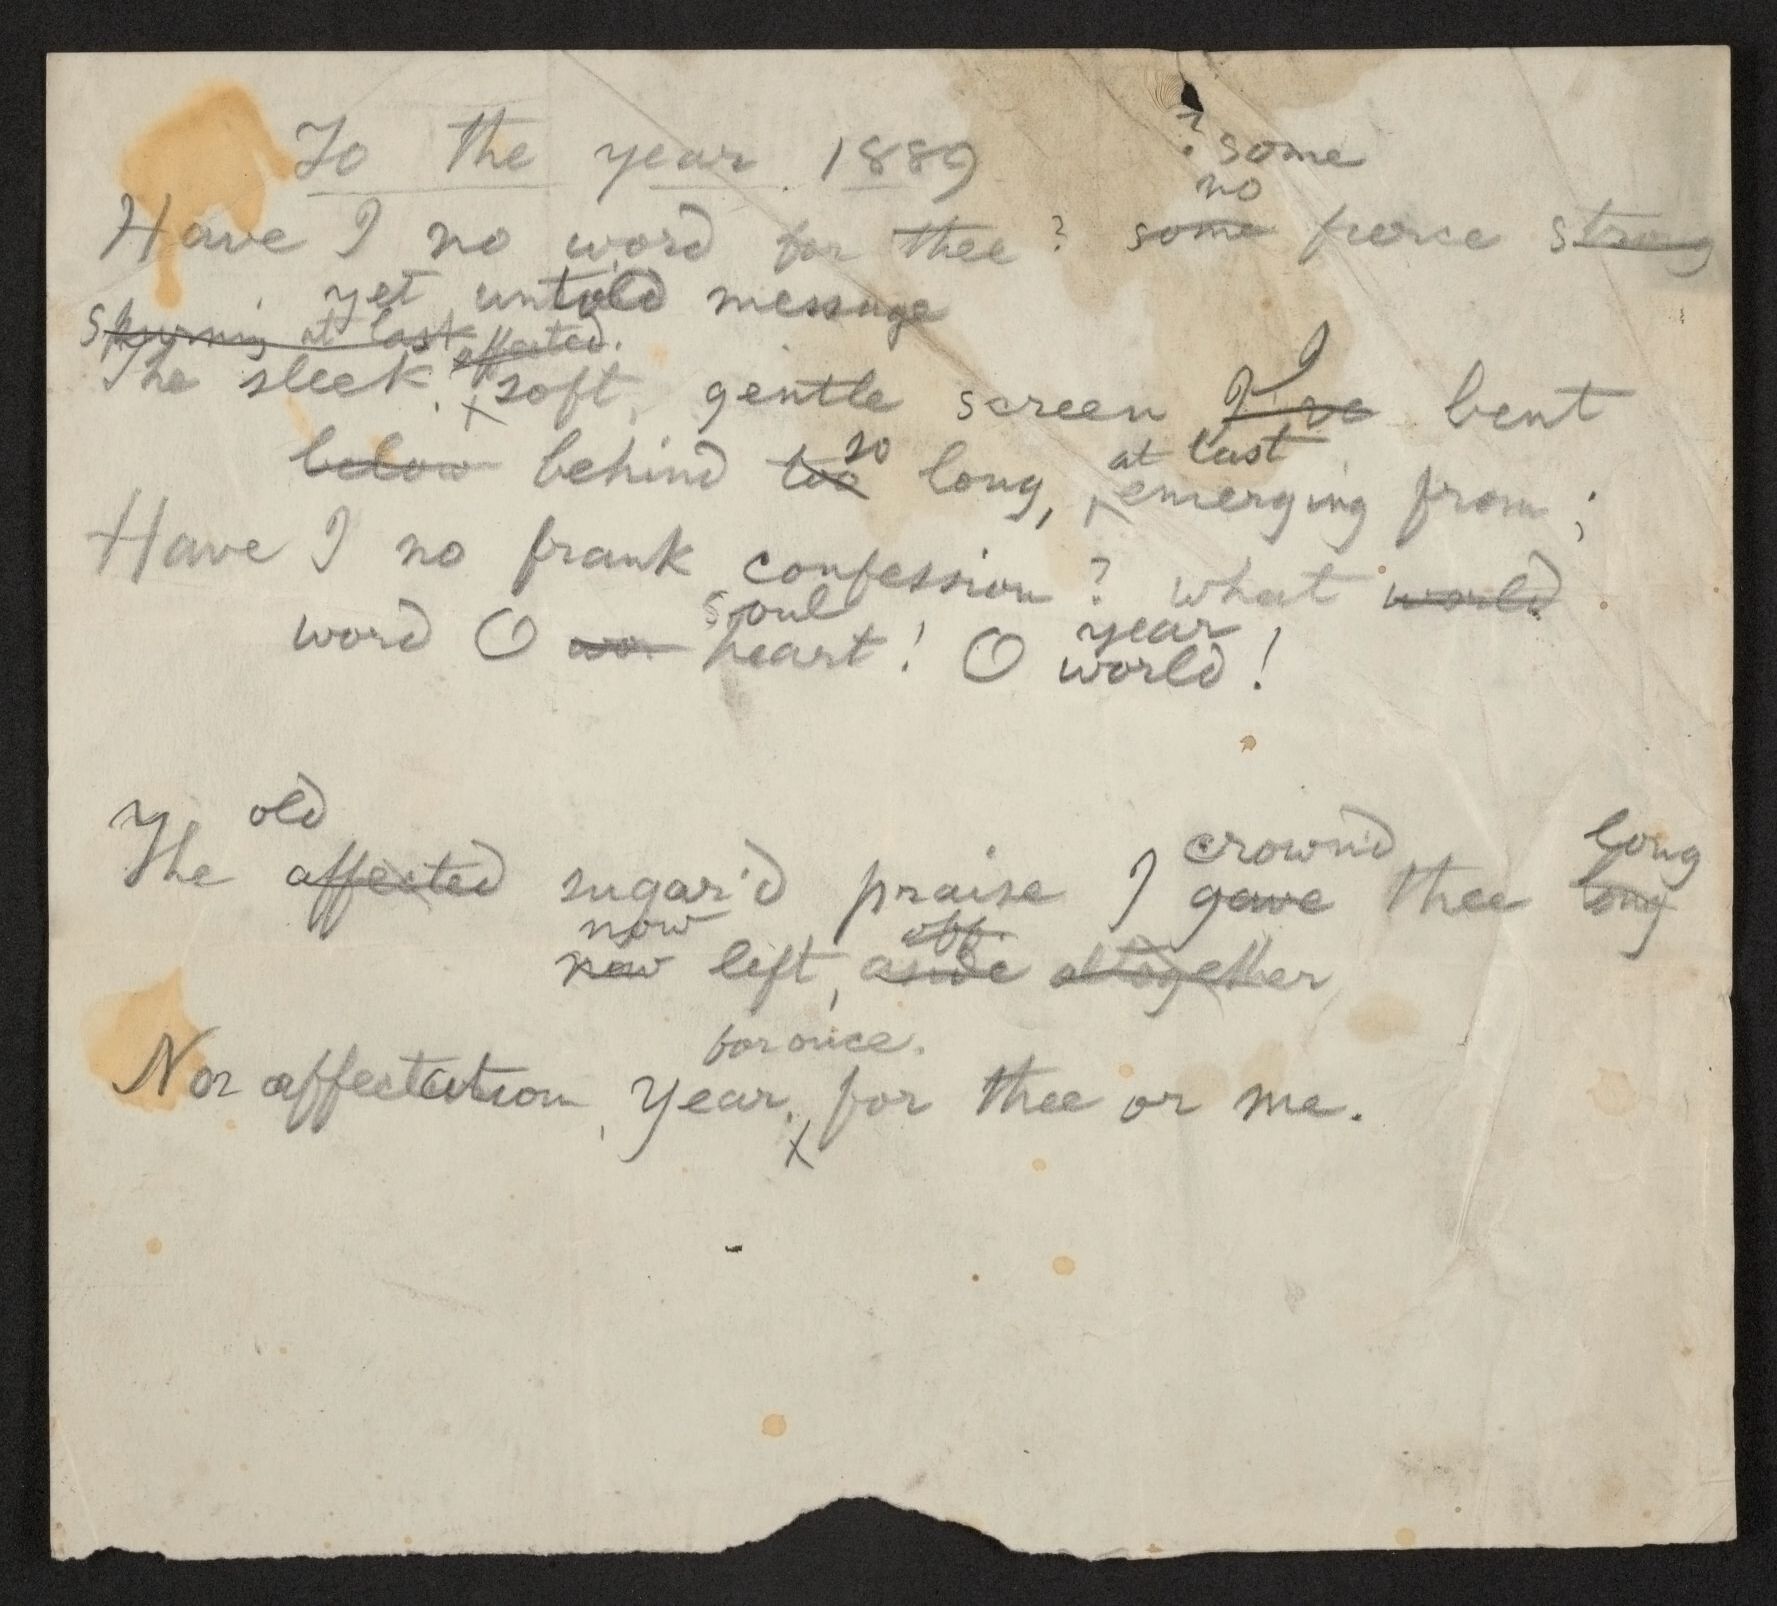 To the year 1889
? some
no
Have I no word for thee? some fierce strong
yet untold message
Spurning at last affected.
The sleek soft, gentle screen I've I bent
below behind too so long, at last emerging from;
Have I no frank confession? what world
soul year
word O wo heart! O world!
old crown'd long
The affected sugar'd praise I gave thee long
now off
now left, aside altogether
for once.
Nor affectation, Year, for thee or me.